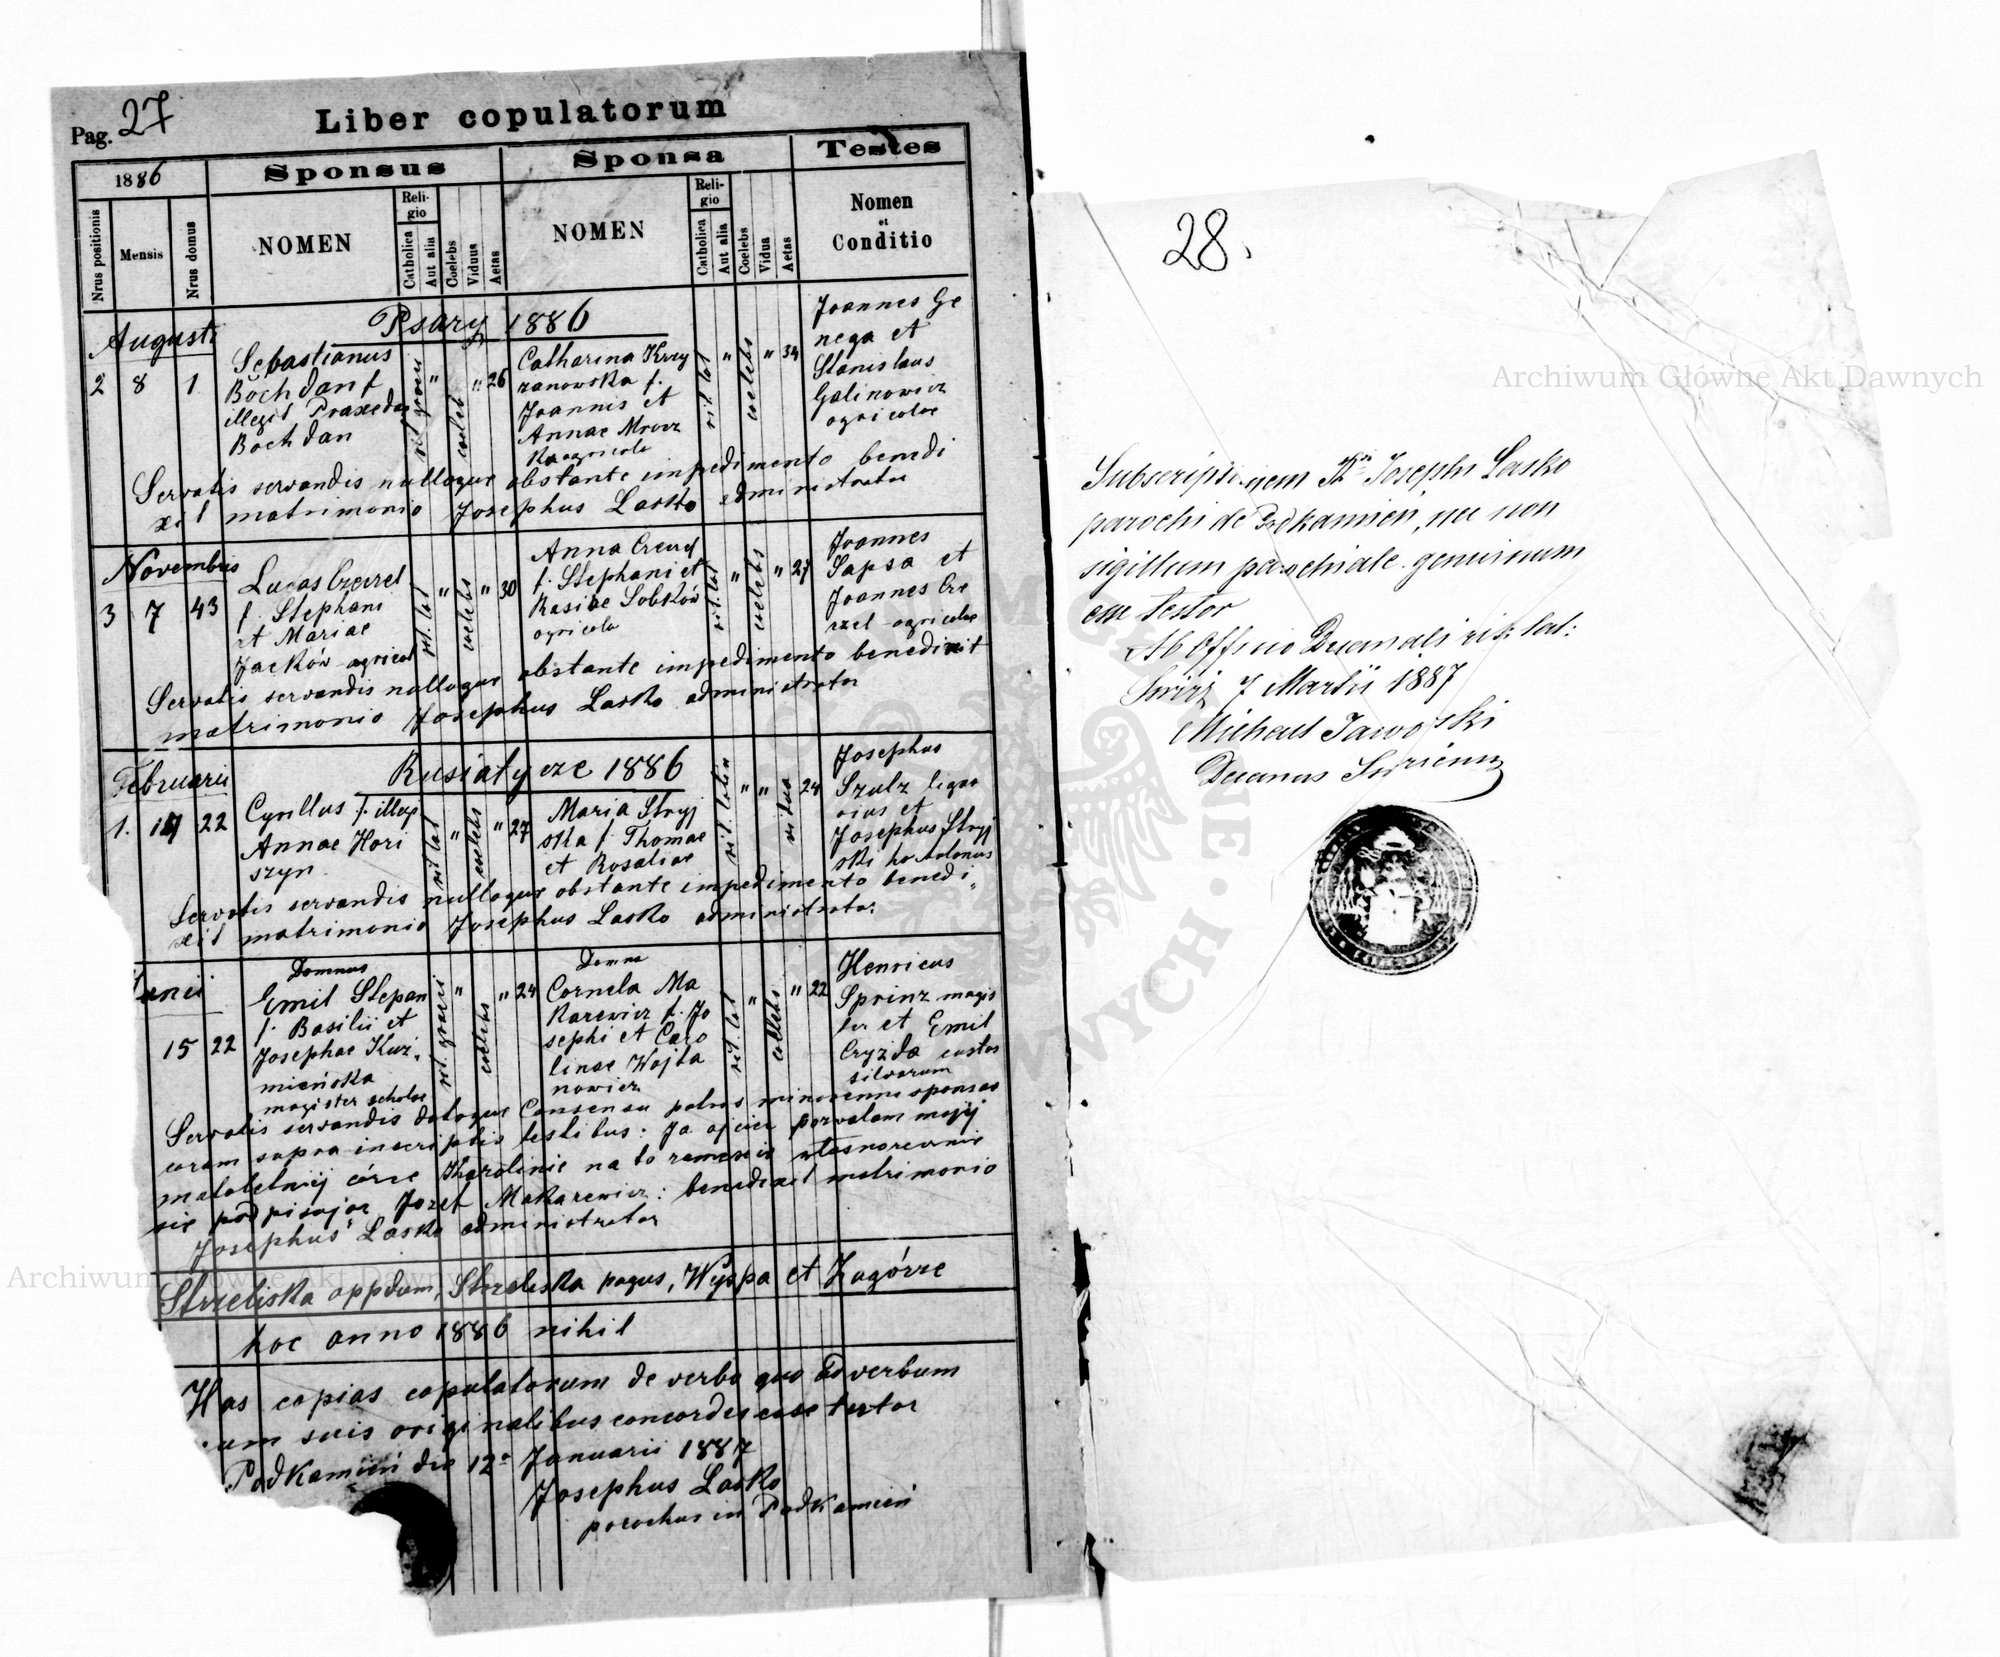 Pag. 27
Liber copulatorum
1886
Sponsus
Sponsa
Testes
Nrus positionis
Mensis
Nrus domus
NOMEN
Reli-
gio
Catholica
Aut alia
Coelebs
Viduus
Aetas
NOMEN
Reli-
gio
Catholica
Aut alia
Coelebs
Vidua
Aetas
Nomen
et
Conditio
Psary 1886
Augusti
2 8 1
Sebastianus
Bochdan f
illegit Praxedae
Bochdan
" coeleb " 26
Catharina Krzy
zanowska f.
Joannis et
Annae Mrocz
ka agricola
rit. lat " coelebs " 34
Joannes Ge
nega et
Stanislaus
Galinowicz
agricolae
Servatis servandis nulloque obstante impedimento benedi
xit matrimonio Josephus Lasko administrator
Novembris
3 7 43
Lucas Czerzel
f. Stephani
et Mariae
Jacków agricol
rit. lat " coelebs " 30
Anna
f. Stephani et
Kasiae Sobków
agricola
rit. lat " coelebs " 27
Joannes
Sapsa et
Joannes Cze
rzel agricolae
Servatis servandis nulloque obstante impedimento benedixit
matrimonio Josephus Lasko administrator
Rusiatycze 1886
Februarii
1. 22
Cyrillus f. illeg
Annae Hori
szyn
rit lat " coelebs " 27
Maria Stryj
ska f. Thomae
et Rosaliae
rit. latin " " vidua 24
Josephus
Szulz
et
Josephus Stryj
ski
Servatis servandis nulloque obstante impedimento benedi
xit matrimonio Josephus Lasko administrator.
Junii
15 22
Domnus
Emil Stepan
f. Basilii et
Josephae Kuź-
mieńska
magister scholae
rit. graeci " coelebs " 24
Domna
Cornela Ma
karewicz f. Jo
sephi et Caro
linae Wojta
nowicz
rit. lat " coelebs " 22
Henricus
Sprinz magis
ter et Emil
Cryzda custos
silvarum
Servatis servandis datoque Consensu patris minorennis sponsae
coram supra inscriptis testibus: Ja ojciec pozwalam mojej
małoletniej córce Karolinie na to własnoręcznie
się podpisując Jozef Makarewicz: benedixit matrimonio
Josephus Lasko administrator
Strzeliska oppdum, Strzeliska pagus, Wyspa et Zagórze
hoc anno 1886 nihil
Has copias copulatorum de verbo quo ad verbum
cum suis originalibus concordes esse testor
Podkamień die 12a Januarii 1887
Josephus Lasko
parochus in Podkamień
28.
Subscriptionem Josephi Lasko
parochi de Podkamień, nec non
sigillum parochiale genuinum
esse testor
Ab Officio Decanali rit: lat:
Świrz 7 Martii 1887
Michael Jaworski
Decanus
Archiwum Główne Akt Dawnych
Archiwum Główne Akt Dawnych